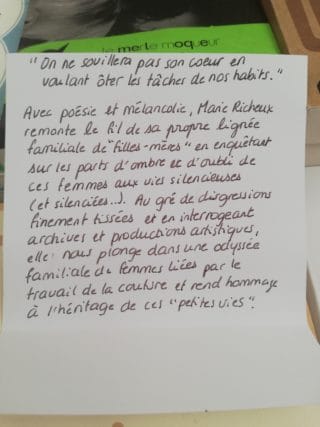 le merle moqueur
"On ne souillera pas son coeur en
voulant ôter les tâches de nos habits."
Avec poésie et mélancolie, Marie Richeux
remonte le fil de sa propre lignée
familiale de "filles-mères" en enquêtant
sur les parts d'ombre et d'oubli de
ces femmes aux vies silencieuses
(et silenciées...). Au gré de digressions
finement tissées et en interrogeant
archives et productions artistiques,
elle nous plonge dans une odyssée
familiale de femmes liées par le
travail de la couture et rend hommage
à l'héritage de ces "petites vies".